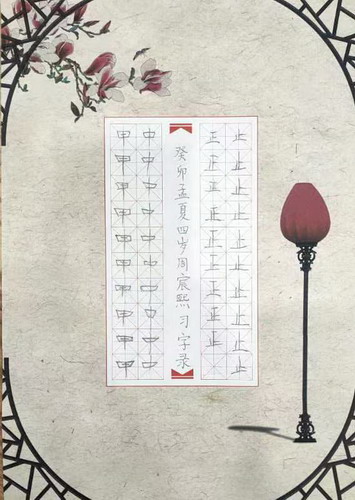 止止止止止止止止止止
正正正正正正正正正
癸卯孟夏四岁周宸熙习字录
中中中中中中中中中中
甲甲甲甲甲甲甲甲甲甲